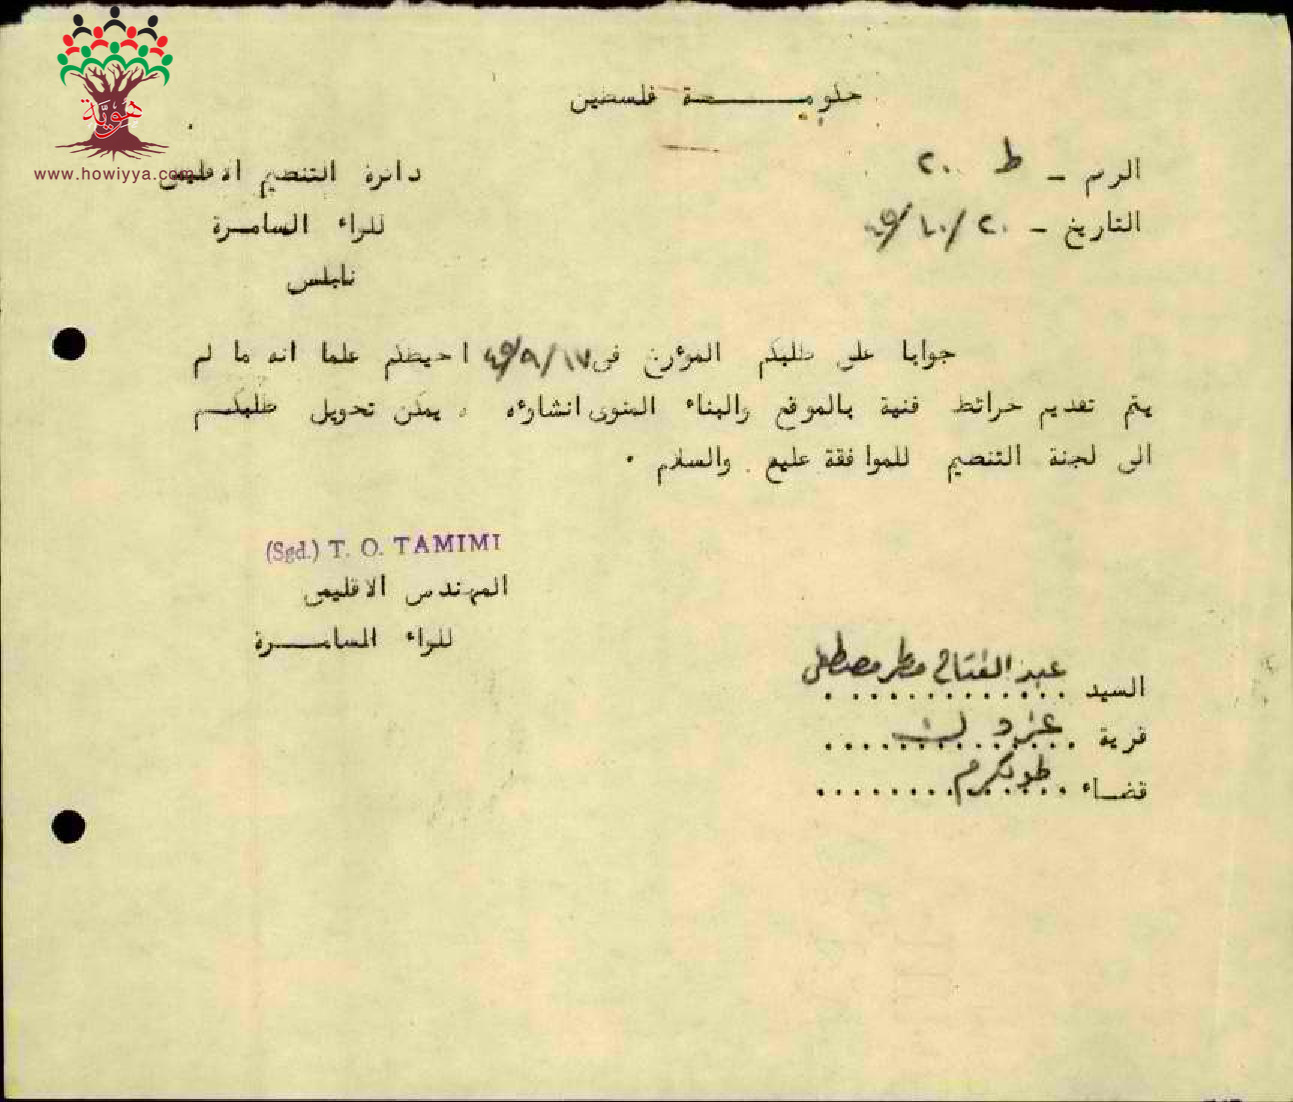 هوية
www.howiyya.com
حكومـــــة فلسطين
الرقم - ط ٢٠
دائرة التنظيم الاقليمي
التاريخ - ٢٠/١٠/٤٥
للواء السامرة
نابلس
جوابا على طلبكم المؤرخ في ١٧/٩/٤٥ احيطكم علما انه ما لم
يتم تقديم خرائط فنية بالموقع والبناء المنوى انشاؤه ، يمكن تحويل طلبكم
الى لجنة التنظيم للموافقة عليه . والسلام .
(Sgd.) T. O. TAMIMI
المهندس الاقليمي
للواء السامـــرة
السيد عبد الفتاح مطر مصطفى
قرية عزون
قضاء طولكرم